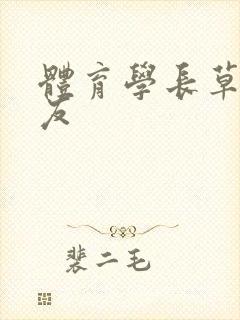 體育學長草
友
裴二毛